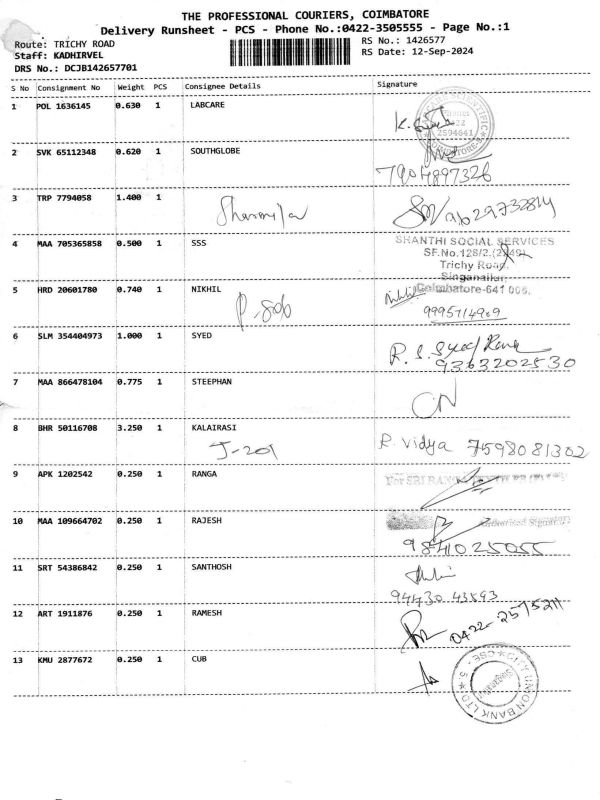 THE PROFESSIONAL COURIERS, COIMBATORE
Delivery Runsheet - PCS - Phone No.:0422-3505555 - Page No.:1
Route: TRICHY ROAD
Staff: KADHIRVEL
DRS No.: DCJB142657701
RS No.: 1426577
RS Date: 12-Sep-2024
S No Consignment No Weight PCS Consignee Details Signature
1 POL 1636145 0.630 1 LABCARE
2594641
2 SVK 65112348 0.620 1 SOUTHGLOBE
7904897326
3 TRP 7794058 1.400 1
Sharmila
4 MAA 705365858 0.500 1 SSS
SHANTHI SOCIAL SERVICES
Trichy Road,
Singanallur,
Coimbatore-641 005.
5 HRD 20601780 0.740 1 NIKHIL
9995714909
6 SLM 354404973 1.000 1 SYED
9363202530
7 MAA 866478104 0.775 1 STEEPHAN
8 BHR 50116708 3.250 1 KALAIRASI
J-201
R. Vidya 7598081302
9 APK 1202542 0.250 1 RANGA
For SRI
10 MAA 109664702 0.250 1 RAJESH
Authorised
9841025055
11 SRT 54386842 0.250 1 SANTHOSH
94430 43593
12 ART 1911876 0.250 1 RAMESH
0422-2575211
13 KMU 2877672 0.250 1 CUB
CITY UNION BANK LTD
CBE - 5